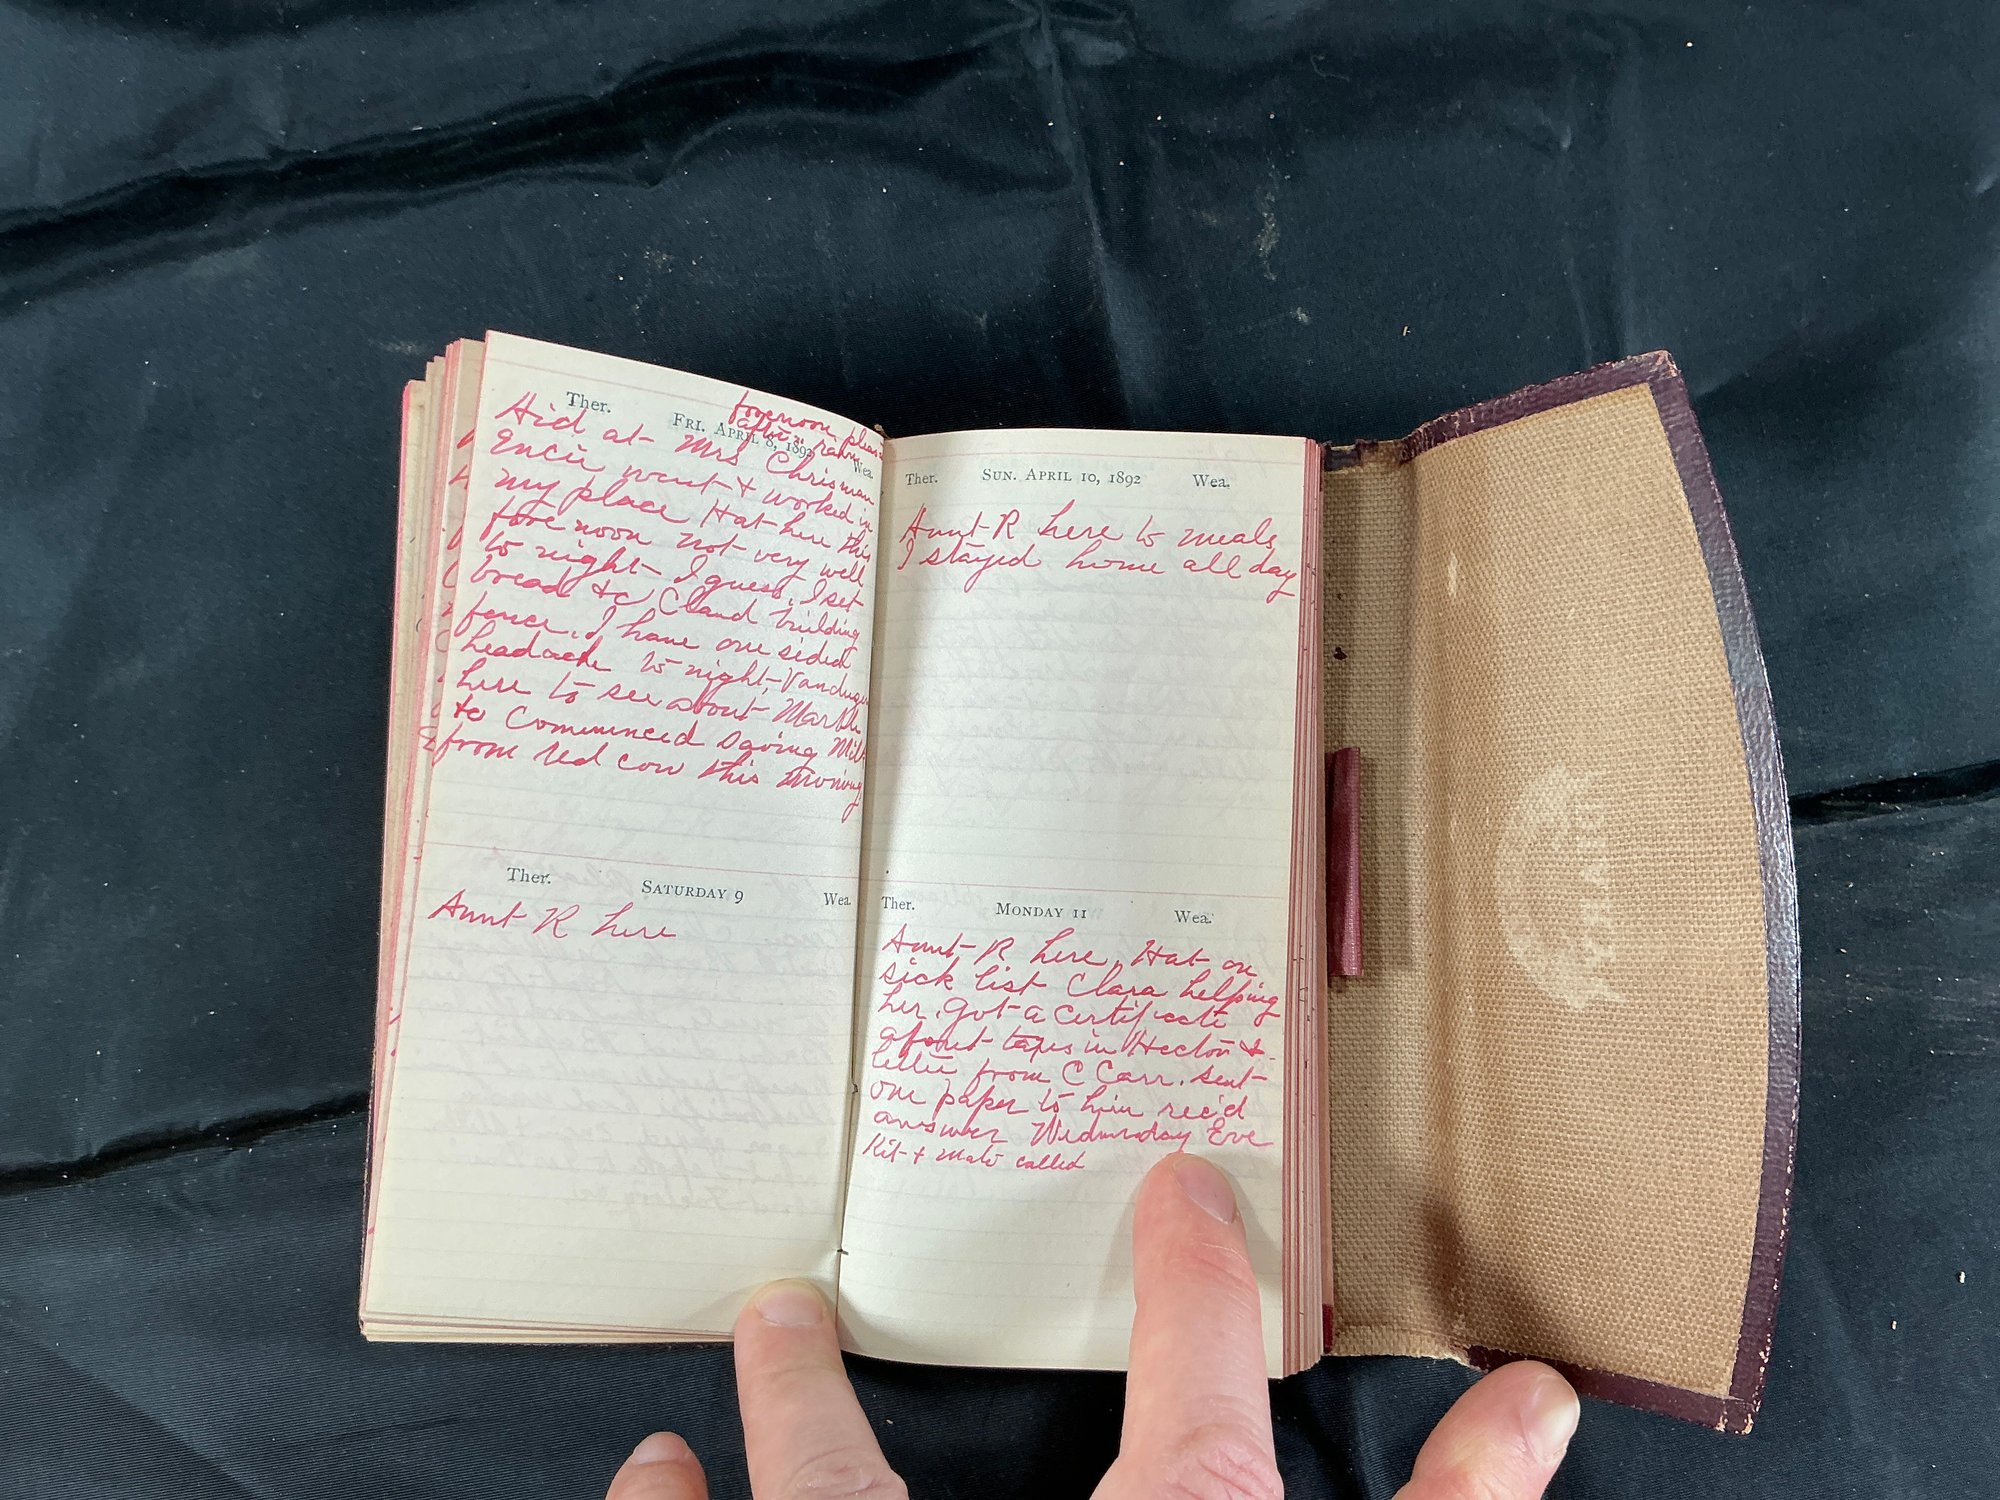 Ther. FRI. APRIL 8, 1892 Wea.
forenoon pleas
after. rainy
Aid at Mrs Chrisman
Encie went & worked in
my place Hat here this
fore noon not very well
to night I guess, I set
bread &c, Claud building
fence. I have one sided
headache to night,
here to see about Marble
to commenced saving Milk
from red cow this morning
Ther. SATURDAY 9 Wea.
Aunt R here
Ther. SUN. APRIL 10, 1892 Wea.
Aunt R here to meals
I stayed home all day
Ther. MONDAY 11 Wea.
Aunt R here, Hat on
sick list Clara helping
her. Got a certificate
about taxes in Hecton &
letter from C Carr. sent
one paper to him rec'd
answer Wednesday Eve
Kit & called